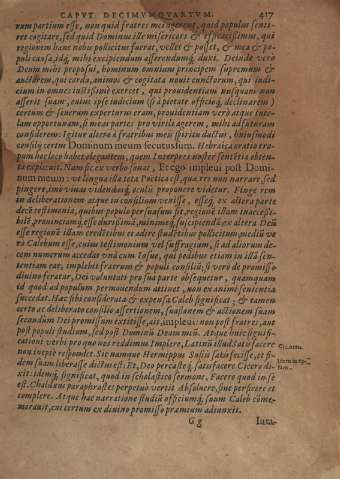 CAPVT DECIMVMQVARTVM. 417
rum partium esse, non quid fratres mei agerent, quid populus senti-
ret cogitare, sed quid Dominum ille misericors & efficacissimus, qui
regionem hanc nobis pollicitus fuerat, vellet & posset, & mea & po-
puli causa, idq́ mihi excipiendum asserendumq́ duxi. Deinde vero
Deum mihi proposui, hominum omnium principem supremum &
auctorem, qui corda, animos & cogitata nouit cunctorum, qui iudi-
cium in omnes iustissime exercet, qui prouidentiam nusquam non
asserit suam, cuius ipse iudicium (si a pietate officioq́ declinarem)
certum & seuerum experturus eram, prouidentiam vero atque tute-
lam opportunam, si meas partes pro virili agerem, mihi adfuturam
considerem: Igitur altero a fratribus meis spiritu ductus, huiusmodi
consilij certm Dominum meum secutussum. Hebraica oratio tro-
pum hoc loco habet elegantem, quem Interpres noster sententia obten-
ta explicuit. Nam sic ex verbo sonat, Et ego impleui post Domi-
num meum: vt lingua illa tota Poetica est, quæ res non narrare, sed
pingere, imo viuas videndasq́ oculis proponere videtur. Finge rem
in deliberationem atque in consilium venisse, esseq́ ex altera parte
decē testimonia, quibus populo persuasum sit, regionē illam inaccessi-
bilē, prouinciamq́ esse durissimā, minimeq́ suscipiendā: ex altera Deū
esse regionē illam credētibus et adire studētibus pollicitum, mediū ve
ro Calebum esse, cuius testimonium vel suffragium, si ad aliorum de-
cem numerum accedat vnā cum Iosue, qui pedibus etiam in illā sen-
tentiam eat, implebit fratrum & populi consiliū; si vero de promisso
diuino feratur, Dei voluntatē pro sua parte obsequetur, quamquam
id quod ad populum permouendum attinet, non ex animi sententia
succedat. Hac sibi considerata & expensa Caleb significat; & tamen
certo ac deliberato consilio assertionem, suasionem & actionem suam
secundūm Dei promissum extitisse, aitq́, impleui: non post fratres, aut
post populi studium, sed post Dominū Deum meū. Atque huic signifi-
cationi verbi pro quo nos reddimus Implere, Latinū illud Satisfacere
non inepte respondet. Sic namque Hermippus Sussii satisfecisse, et fi-
dem suam liberasse dictus est: Et, Deo percastēq́ satisfacere Cicero di-
xit: idemq́ significat, quod in scholastico sermone, Facere quod in se
est. Chaldæus paraphrastes perpetuo vertit Absoluere, siue perficere et
complere. Atque hac narratione studiū officiumq́ suum Caleb comme-
morauit, cui certum ex diuino promisso præmium adiunxit.
Gg Iura-
Cicero.